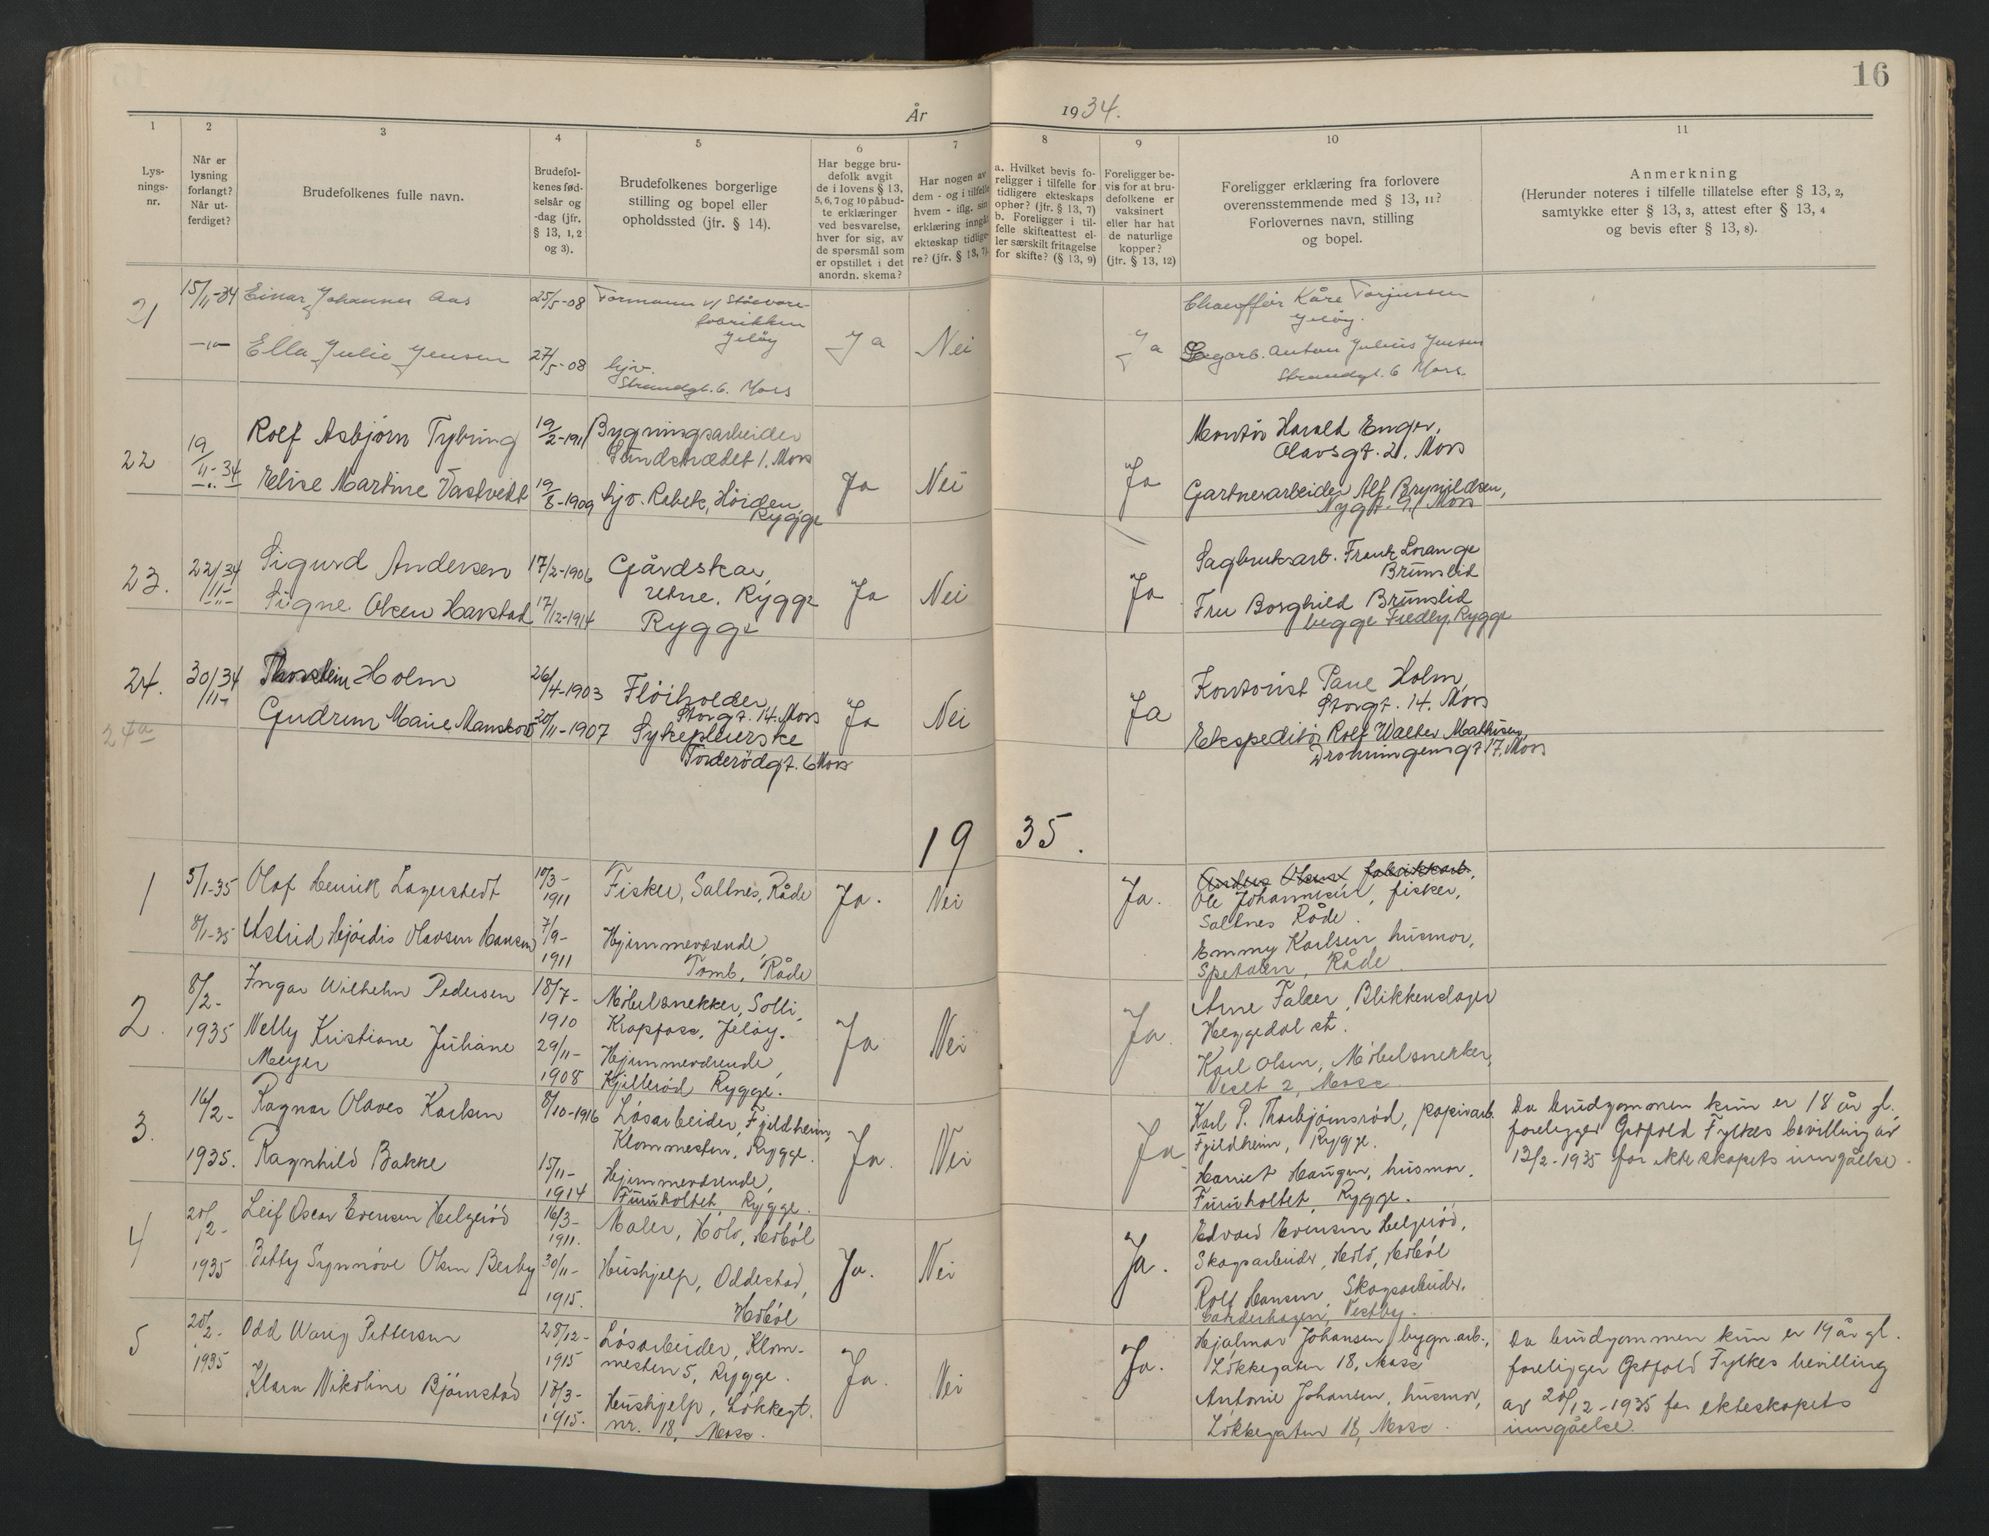 16
År
1934.
1
2
3
4
5
6
7
8
9
10
11
Lys-
nings-
nr.
Når er
lysning
forlangt?
Når ut-
ferdiget?
Brudefolkenes fulle navn.
Brudefol-
kenes fød-
selsår og
-dag (jfr.
§ 13, 1, 2
og 3).
Brudefolkenes borgerlige
stilling og bopel eller
opholdssted (jfr. § 14).
Har begge bru-
defolk avgit
de i lovens § 13,
5, 6, 7 og 10 påbud-
te erklæringer
ved besvarelse,
hver for sig, av
de spørsmål som
er opstillet i det
anordn. skema?
Har nogen av
dem - og i tilfelle
hvem - iflg. sin
erklæring inngått
ekteskap tidlige-
re? (jfr. § 13, 7).
a. Hvilket bevis fo-
religger i tilfelle for
tidligere ekteskaps
ophør? (jfr. § 13, 7)
b. Foreligger i til-
felle skifteattest el-
ler særskilt fritagelse
for skifte? (§ 13, 9)
Foreligger be-
vis for at bru-
defolkene er
vaksinert
eller har hat
de naturlige
kopper?
(jfr. § 13, 12)
Foreligger erklæring fra forlovere
overensstemmende med § 13, 11?
Forlovernes navn, stilling
og bopel.
Anmerkning
(Herunder noteres i tilfelle tillatelse efter § 13, 2,
samtykke efter § 13, 3, attest efter § 13, 4
og bevis efter § 13, 8).
21
15/11-34
Einar Johannes Aas
25/5-08
Formann v/
fabrikken
Jeløy
Ja
Nei
Ja
Chauffør Kåre Torjussen
Jeløy.
Ella Julie Jensen
27/5-08
hjv.
Strandgt. 6. Moss
Sagarb. Anton Julius Jensen
Strandgt. 6 Moss.
22
19/11-34
Rolf Asbjørn Tybring
19/2-1911
Bygningsarbeider
Sundstrædet 1. Moss
Ja
Nei
Ja
Montør Harald Enger,
Olavsgt. 21. Moss
Elise Martine Vastveit
19/8-1909
hjv. Rebek, Höiden
Rygge
Gartnerarbeider Alf Brynildsen,
Nygt. 91 Moss
23.
22/11-34
Sigurd Andersen
17/2-1906
Gårdskar,
Rygge
Ja
Nei
Ja
Sagbruksarb. Frank Lorange
Brunslid
Signe Olsen Harstad
17/12-1914
Rygge
Fru Borghild Brunslid
begge Fredly, Rygge
24.
30/11-34
Thorstein Holm
26/4-1903
Fløiholder
Storgt. 14. Moss
Ja
Nei
Ja
Kontorist Paul Holm,
Storgt. 14. Moss
24a
Gudrun Marie Manskow
20/11-1907
Sykepleierske
Torderødgt. 6 Moss
Ekspeditør Rolf Walter Mathisen,
Dronningensgt 17, Moss
1935.
1
5/1-35
Olaf Henrik Lagerstedt
10/3-
1911
Fisker, Saltnes, Råde
Ja.
Nei
Ja.
Anders Olsen fabrikkarb.
Ole Johannesen, fisker,
Saltnes Råde.
8/1-35
Astrid Hjørdis Olavsen Hansen
7/9-
1911
Hjemmeværende,
Tomb, Råde
Emmy Karlsen husmor,
Spetalen, Råde.
2.
8/2-
1935
Ingar Wilhelm Pedersen
18/7-
1910
Møbelsnekker, Solli,
Krapfoss, Jeløy.
Ja
Nei
Ja.
Arne Falker, Blikkenslager
Heggedal st.
Nelly Kristiane Juliane
Meyer
29/11-
1908
Hjemmeværende,
Kjillerød Rygge.
Karl Olsen, Møbelsnekker,
2, Moss.
3.
16/2-
1935.
Ragnar Olaves Karlsen
8/10-1916
Løsarbeider, Fjeldheim,
Klommesten, Rygge.
Ja.
Nei
Ja
Karl P. Thorbjørnsrød, papirarb.
Fjeldheim, Rygge.
Da brudgommen kun er 18 år gl.
foreligger Østfold Fylkes bevilling av
13/2-1935 for ekteskapets inngåelse.
Ragnhild Bakke
15/11-
1914
Hjemmeværende,
Furuholtet, Rygge.
Harriet Haugen, husmor.
Furuholtet, Rygge.
4
20/2-
1935
Leif Oscar Evensen Helgerød
16/3-
1911.
Maler, Holo, Hobøl
Ja.
Nei
Ja.
Edvard Evensen Helgerød,
Skogsarbeider, Holo, Hobøl
Betty Synnøve Olsen Berby
30/11-
1915.
Hushjelp, Oddestad,
Hobøl
Rolf Hansen Skogsarbeider,
Vestby.
5
20/2-
1935
Odd Warig Pettersen
28/12-
1915
Løsarbeider, Klom-
mesten 5, Rygge.
Ja.
Nei
Ja.
Hjalmar Johansen bygn.arb.,
Løkkegaten 18, Moss
Da brudgommen kun er 19 år gl.
foreligger Østfold Fylkes bevilling
av 20/12-1935 for ekteskapets
inngåelse.
Klara Nikoline Bjørnstad
18/3-
1915.
Hushjelp, Løkkegt.
nr. 18, Moss.
Antonie Johansen, husmor,
Løkkegaten 18, Moss.